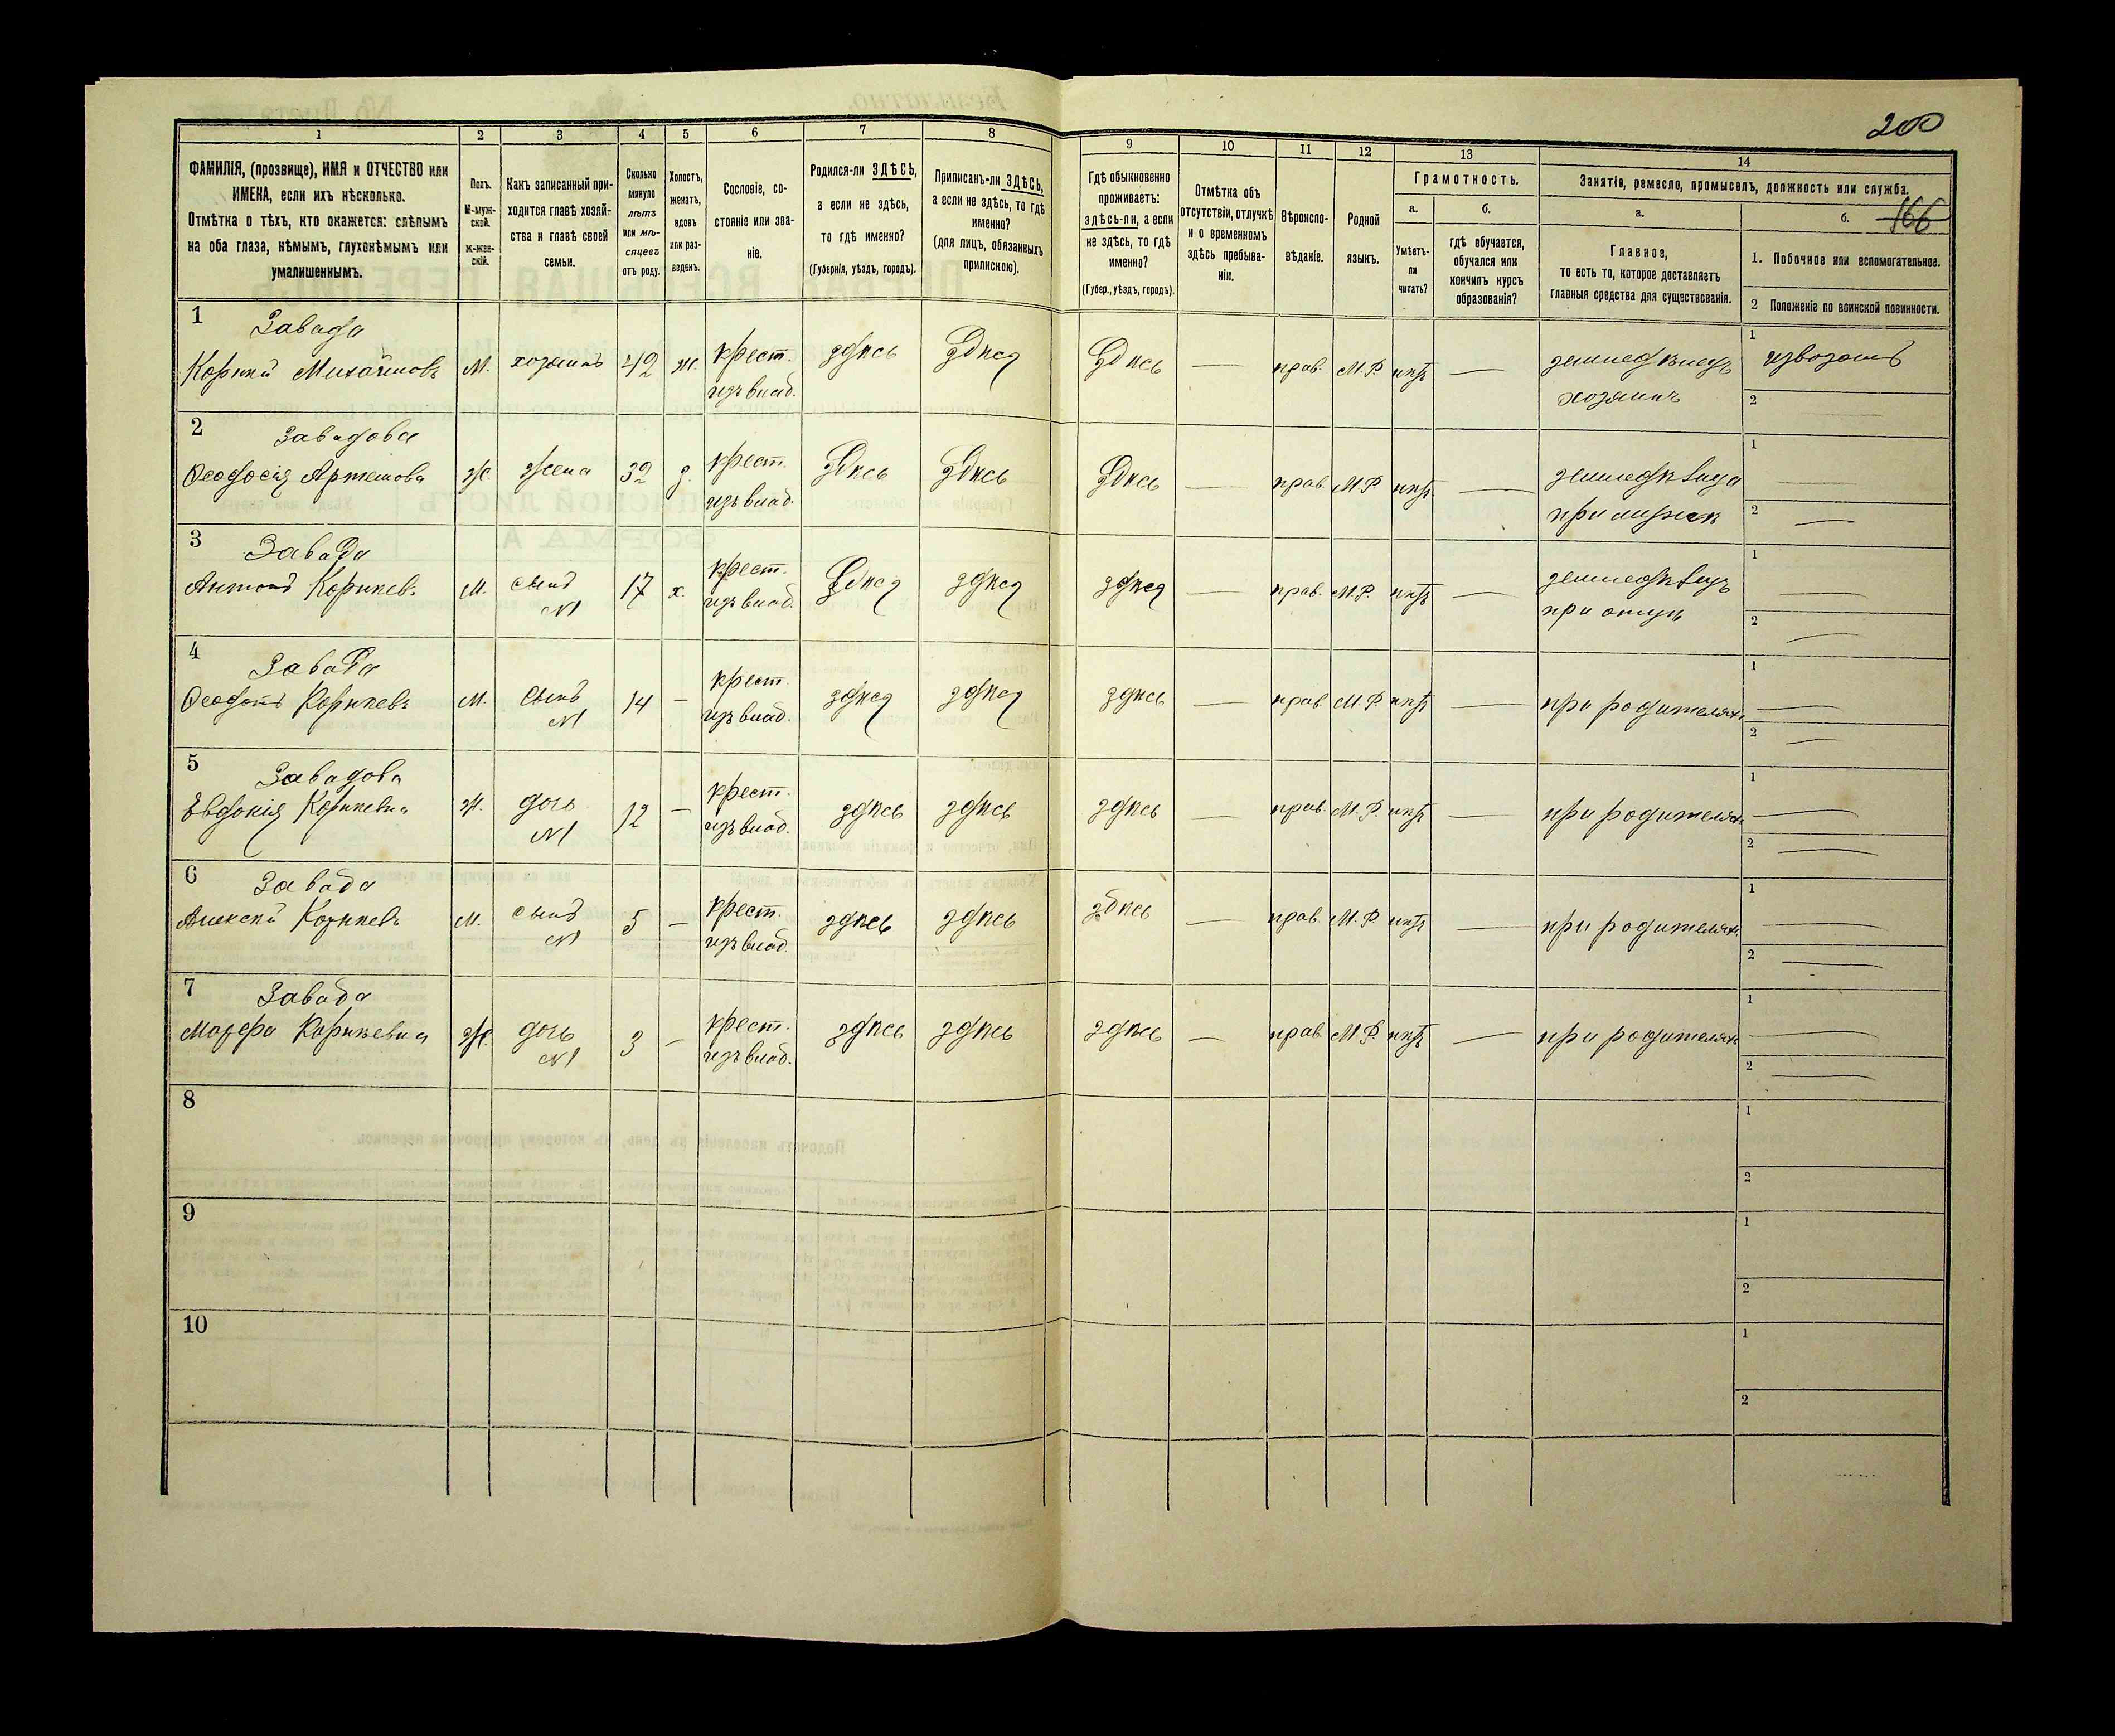 200
1 2 3 4 5 6 7 8 9 10 11 12 13 14
ФАМИЛІЯ, (прозвище), ИМЯ и ОТЧЕСТВО или
ИМЕНА, если ихъ нѣсколько.
Отмѣтка о тѣхъ, кто окажется: слѣпымъ
на оба глаза, нѣмымъ, глухонѣмымъ или
умалишеннымъ.
Полъ.
М-муж-
ской.
Ж-жен-
скій.
Какъ записанный при-
ходится главѣ хозяй-
ства и главѣ своей
семьи.
Сколько
минуло
лѣтъ
или мѣ-
сяцевъ
отъ роду.
Холостъ,
женатъ,
вдовъ
или раз-
веденъ.
Сословіе, со-
стояніе или зва-
ніе.
Родился-ли ЗДѢСЬ,
а если не здѣсь,
то гдѣ именно?
(Губернія, уѣздъ, городъ).
Приписанъ-ли ЗДѢСЬ,
а если не здѣсь, то гдѣ
именно?
(для лицъ, обязанныхъ
припискою).
Гдѣ обыкновенно
проживаетъ:
здѣсь-ли, а если
не здѣсь, то гдѣ
именно?
(Губер., уѣздъ, городъ).
Отмѣтка объ
отсутствіи, отлучкѣ
и о временномъ
здѣсь пребыва-
ніи.
Вѣроиспо-
вѣданіе.
Родной
языкъ.
Грамотность.
а.
Умѣетъ-
ли
читать?
б.
гдѣ обучается,
обучался или
кончилъ курсъ
образованія?
Занятіе, ремесло, промыселъ, должность или служба.
а.
Главное,
то есть то, которое доставляетъ
главныя средства для существованія.
б.
166
1. Побочное или вспомогательное.
2 Положеніе по воинской повинности.
1 Завада
Корнѣй Михайловъ М. хозяинъ 42 ж. крест. здѣсь здѣсь здѣсь — прав. М.Р. нѣтъ — земледѣлецъ 1 извозомъ
изъ влад. хозяинъ 2
2 Завадова
Ѳеодосія Артемова Ж. жена 32 з. крест. здѣсь здѣсь здѣсь — прав. М.Р. нѣтъ — земледѣлица 1 —
изъ влад. при мужѣ 2 —
3 Завада
Антонъ Корнѣевъ М. сынъ 17 х. крест. здѣсь здѣсь здѣсь — прав. М.Р. нѣтъ — земледѣлецъ 1 —
N1 изъ влад. при отцѣ 2 —
4 Завада
Ѳеодотъ Корнѣевъ М. сынъ 14 — крест. здѣсь здѣсь здѣсь — прав. М.Р. нѣтъ — при родителяхъ 1 —
N1 изъ влад. 2 —
5 Завадова
Евдокія Корнѣевна Ж. дочь 12 — крест. здѣсь здѣсь здѣсь — прав. М.Р. нѣтъ — при родителях. 1 —
N1 изъ влад. 2 —
6 Завада
Алексѣй Корнѣевъ М. сынъ 5 — крест. здѣсь здѣсь здѣсь — прав. М.Р. нѣтъ — при родителях. 1 —
N1 изъ влад. 2 —
7 Завада
Корнѣевна Ж. дочь 3 — крест. здѣсь здѣсь здѣсь — прав. М.Р. нѣтъ — при родителяхъ 1 —
N1 изъ влад. 2 —
8 1
2
9 1
2
10 1
2